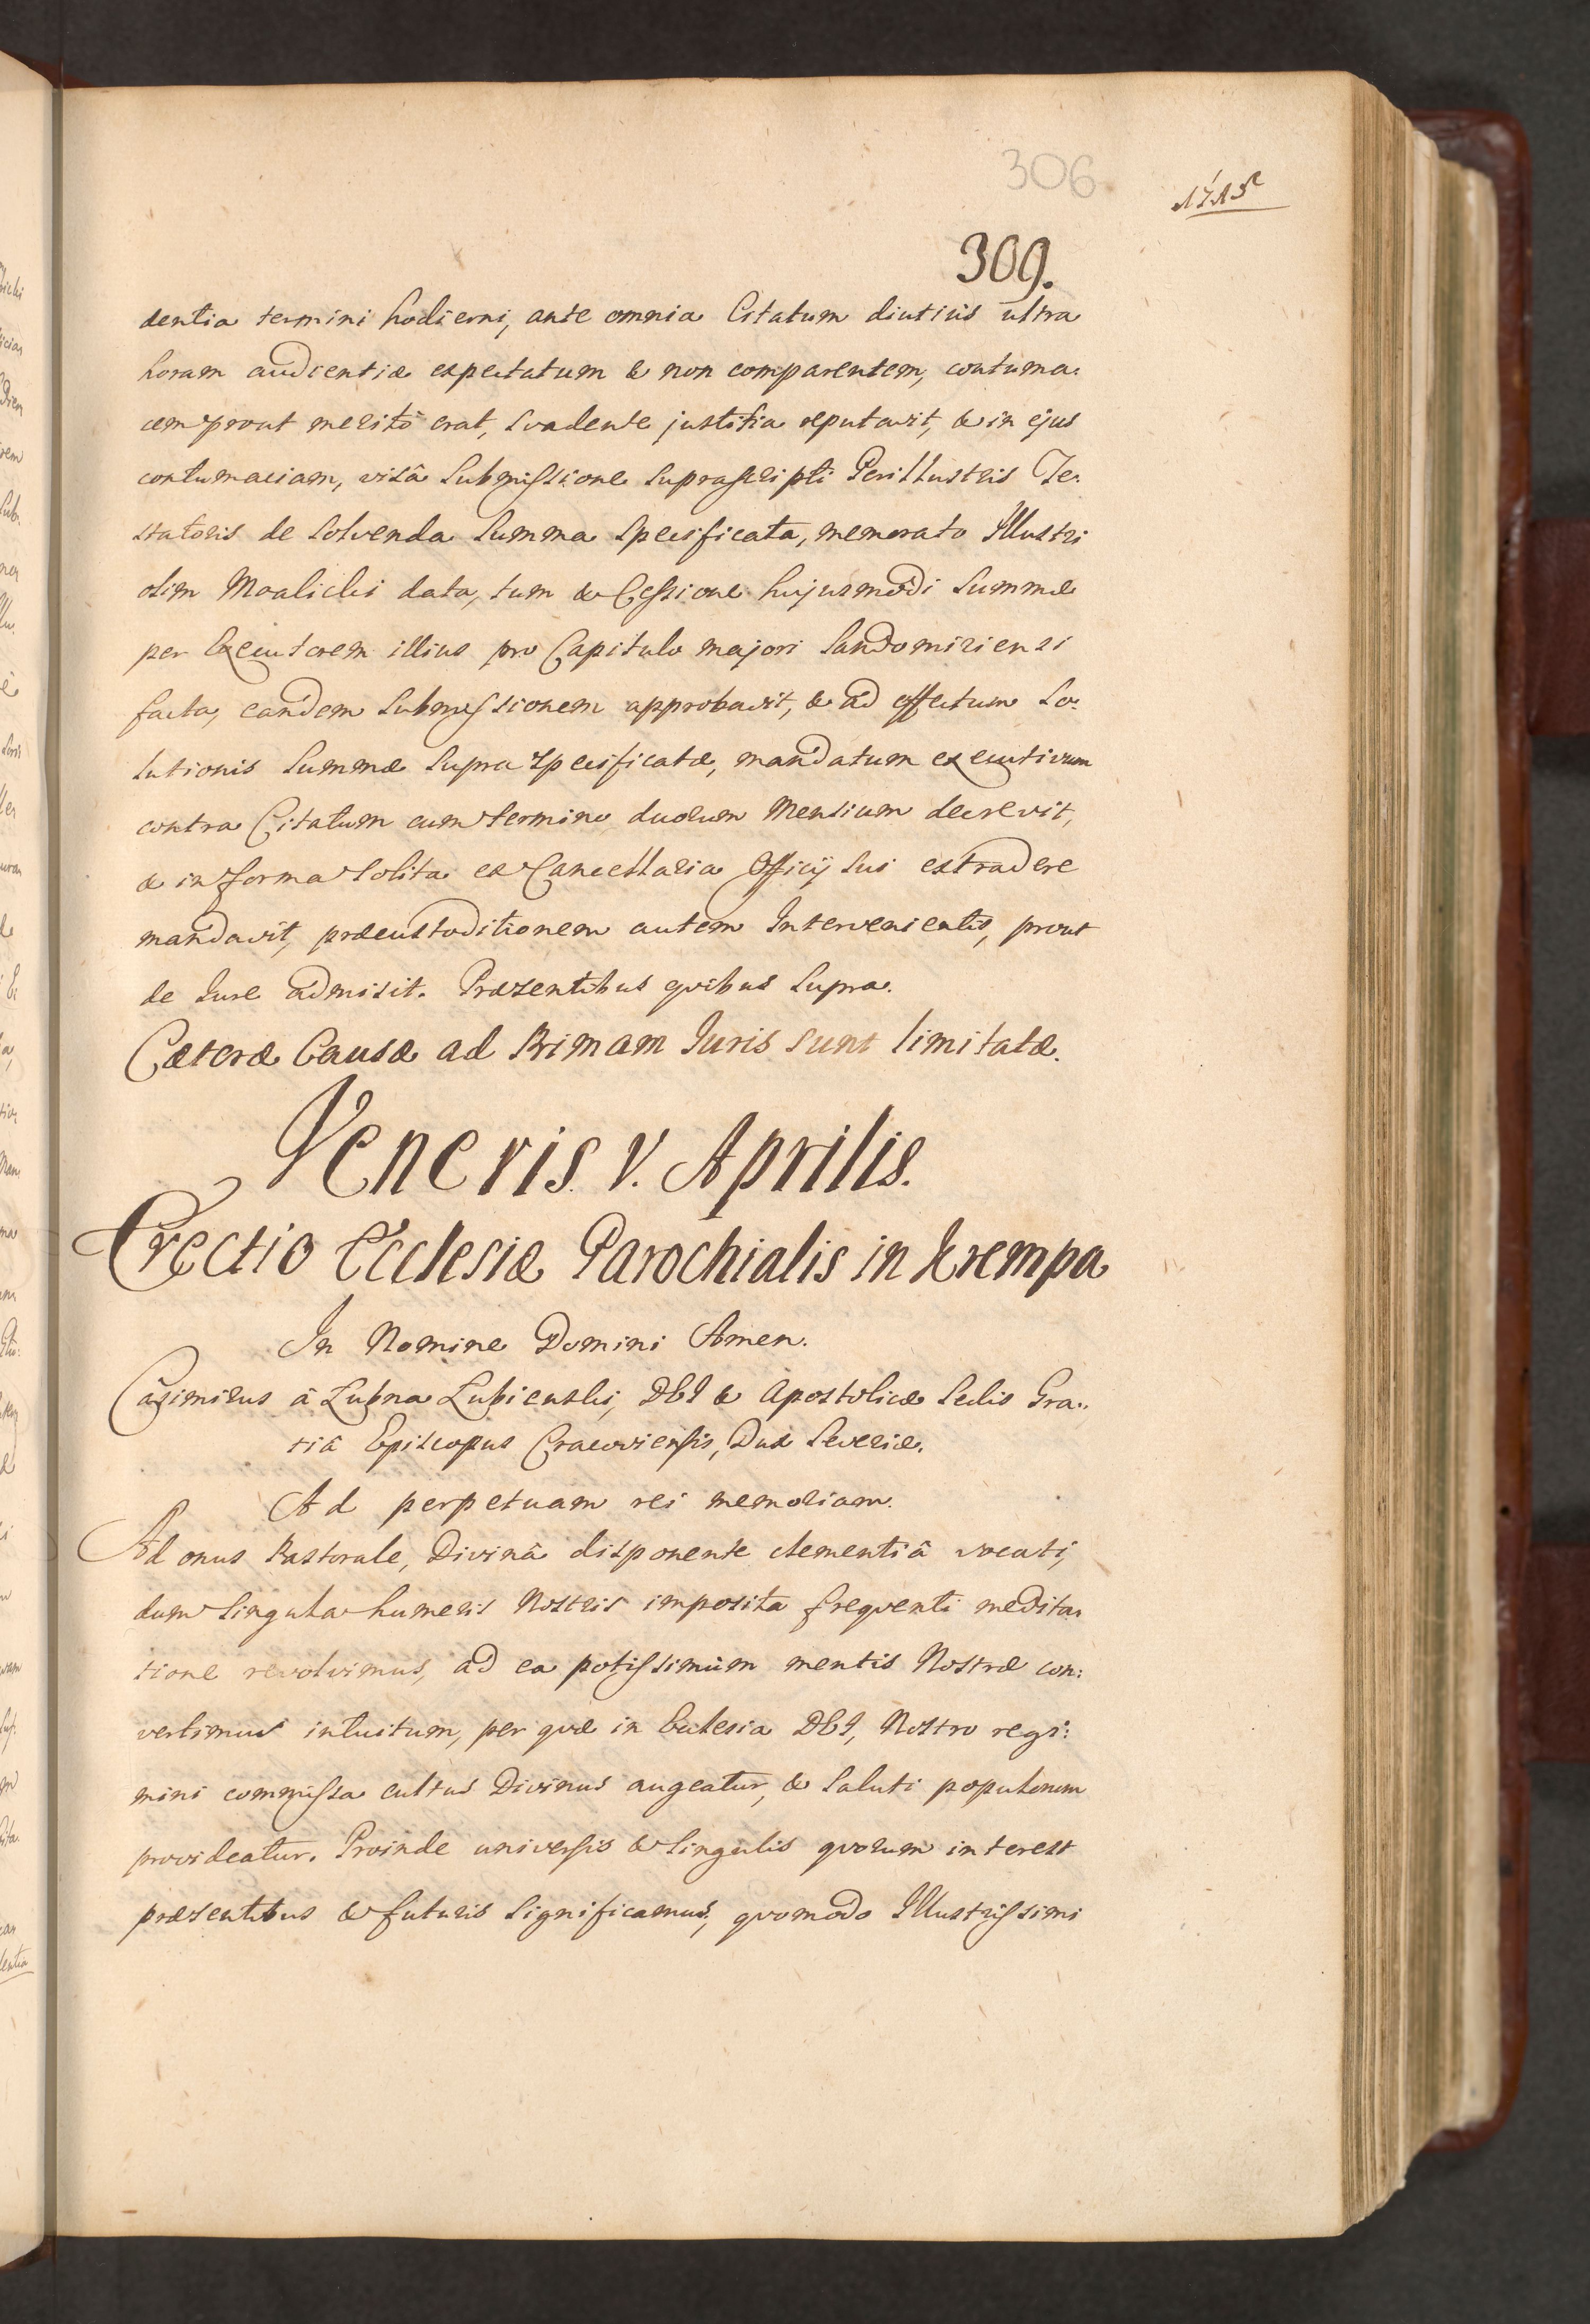 306
1715
309.
dentia termini hodierni, ante omnia Citatum diutius ultra
horam audientiæ expectatum & non comparentem, contuma:
cem prout meritò erat, svadente justitia reputavit, & in ejus
contumaciam, visâ Submissione suprascripti Perillustris Te:
statoris de solvenda summa specificata, memorato Illustri
olim Moalicki data, tum & Cessione hujusmodi summæ
per Executorem illius pro Capitulo majori Sandomiriensi
facta, eandem submissionem approbavit, & ad effectum so:
lutionis summæ supra specificatæ, mandatum executivum
contra Citatum cum termino duorum Mensium decrevit,
& in forma solita ex Cancellaria Officij sui extradere
mandavit, præcustoditionem autem Intervenientis, prout
de Iure admisit. Præsentibus quibus supra.
Cæteræ Causæ ad Primam Iuris sunt limitatæ.
Veneris V. Aprilis.
Erectio Ecclesiæ Parochialis in Krempa
In Nomine Domini Amen.
Casimirus à Łubna Łubienski, DEI & Apostolicæ Sedis Gra:
tiâ Episcopus Cracoviensis, Dux Severiæ.
Ad perpetuam rei memoriam.
Ad onus Pastorale, Divinâ disponente clementiâ vocati,
dum singula humeris Nostris imposita frequenti medita:
tione revolvimus, ad ea potissimùm mentis Nostræ con:
vertimus intuitum, per quæ in Ecclesia DEI, Nostro regi:
mini commissa cultus Divinus augeatur, & saluti populorum
provideatur. Proinde universis & singulis quorum interest
præsentibus & futuris significamus, quomodo Illustrissimi